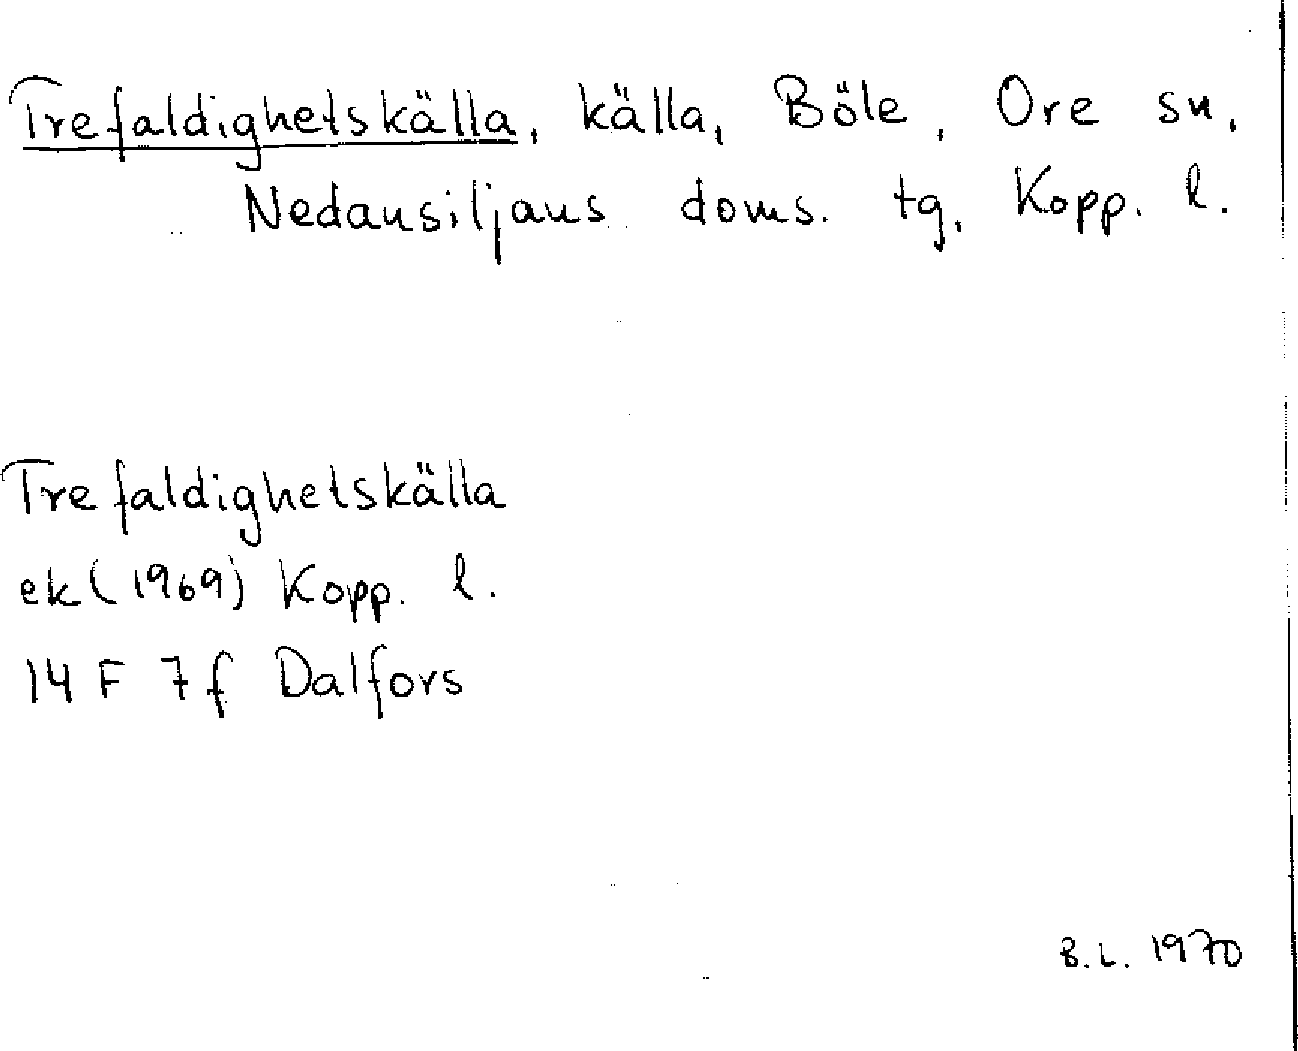 Trefaldighetskälla, källa, Böle, Ore sn,
Nedansiljans doms. tg, Kopp. l.
Trefaldighetskälla
ek (1969) Kopp. l.
14 F 7f Dalfors
B.L. 1970